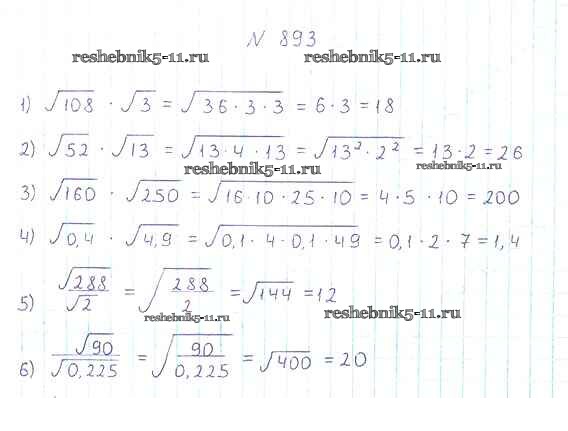 № 893
reshebnik5-11.ru reshebnik5-11.ru
1) √108 · √3 = √36 · 3 · 3 = 6 · 3 = 18
2) √52 · √13 = √13 · 4 · 13 = √13² · 2² = 13 · 2 = 26
reshebnik5-11.ru
3) √160 · √250 = √16 · 10 · 25 · 10 = 4 · 5 · 10 = 200
4) √0,4 · √4,9 = √0,1 · 4 · 0,1 · 49 = 0,1 · 2 · 7 = 1,4
5) √288 / √2 = √288 / 2 = √144 = 12
reshebnik5-11.ru reshebnik5-11.ru
6) √90 / √0,225 = √90 / 0,225 = √400 = 20